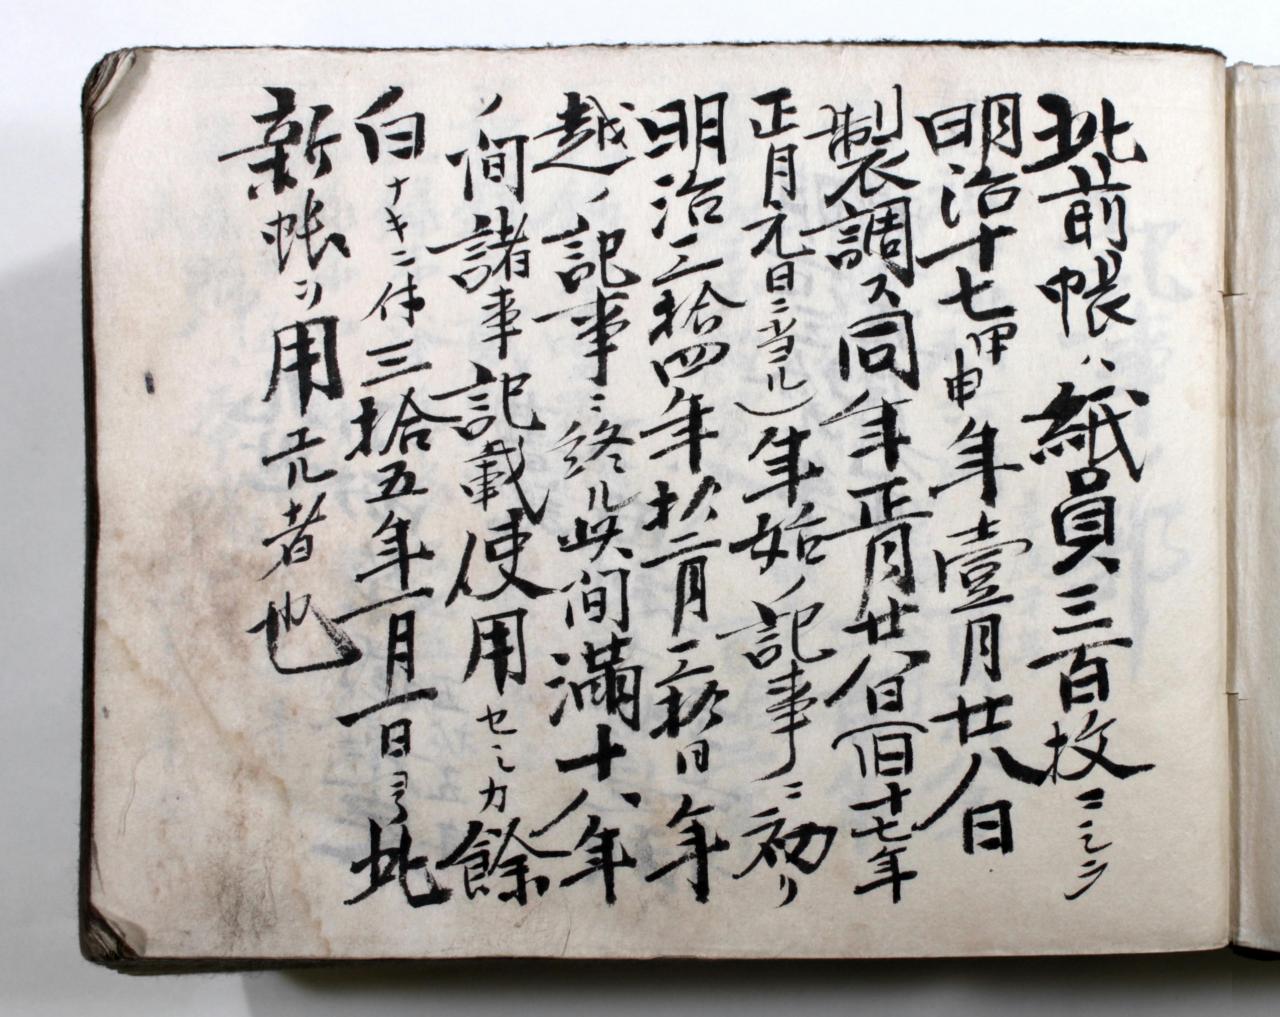 此前帳ハ紙員三百枚ニシテ
明治十七甲申年壹月廿八日
製調ス同年正月廿八日(旧十七年
正月元日ニ当ヨル)年始ノ記事ニ初リ
明治三拾四年拾二月三拾日年
越ノ記事ニ終ル此間満十八年
ノ間諸事記載使用セシカ餘
白ナキニ付三拾五年一月一日ヨリ此
新帳ヲ用エル者也